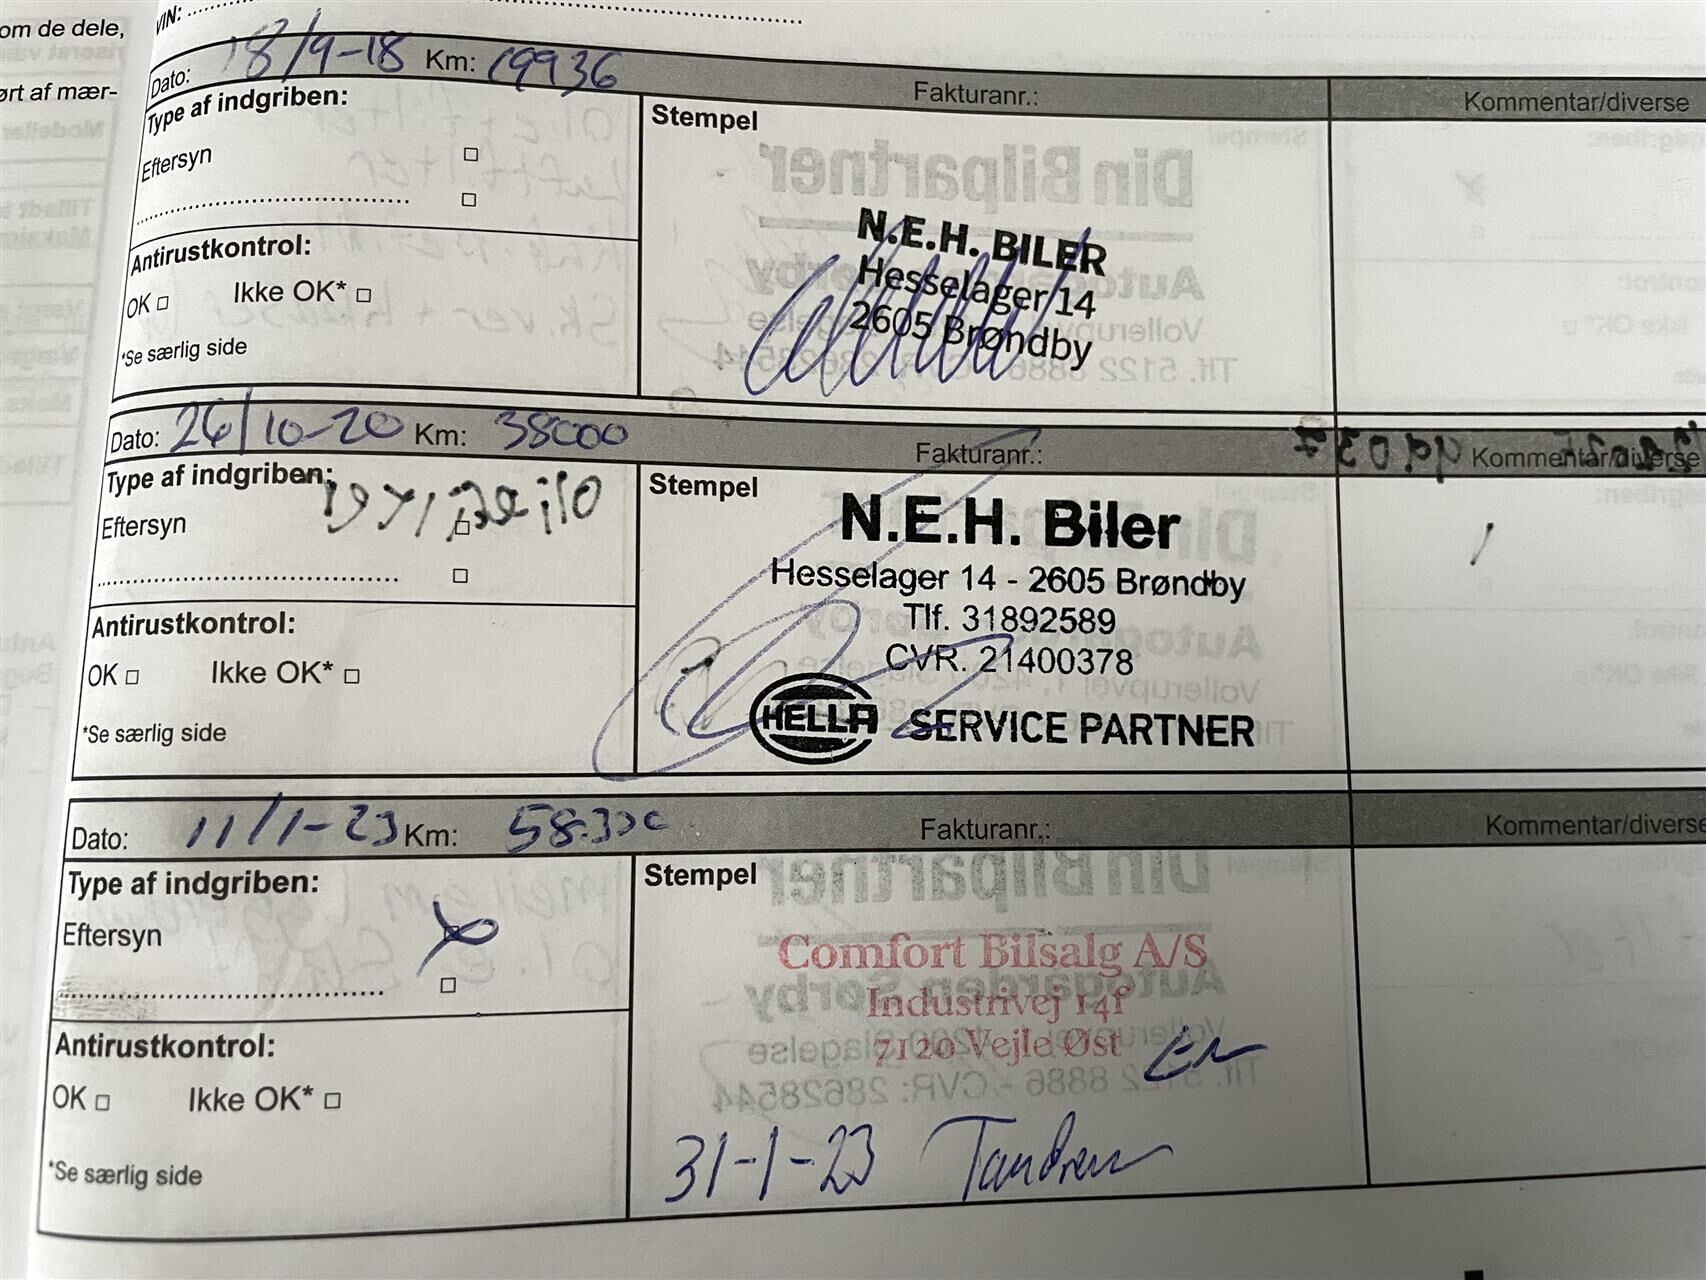 om de dele,
ørt af mær-
VIN:
Dato: 18/9-18 Km: 19936 Fakturanr.: Kommentar/diverse
Type af indgriben:
Eftersyn
Antirustkontrol:
OK Ikke OK*
*Se særlig side
Stempel
N.E.H. BILER
Hesselager 14
2605 Brøndby
Dato: 26/10-20 Km: 38000 Fakturanr.: Kommentar/diverse
Type af indgriben:
Eftersyn
Antirustkontrol:
OK Ikke OK*
*Se særlig side
Stempel
N.E.H. Biler
Hesselager 14 - 2605 Brøndby
Tlf. 31892589
CVR. 21400378
HELLA SERVICE PARTNER
Dato: 11/1-23 Km: Fakturanr.: Kommentar/diverse
Type af indgriben:
Eftersyn
Antirustkontrol:
OK Ikke OK*
*Se særlig side
Stempel
Comfort Bilsalg A/S
Industrivej 14f
7120 Vejle Øst
31-1-23 Tandrem